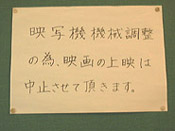 映写機機械調整
の為、映画の上映は
中止させて頂きます。